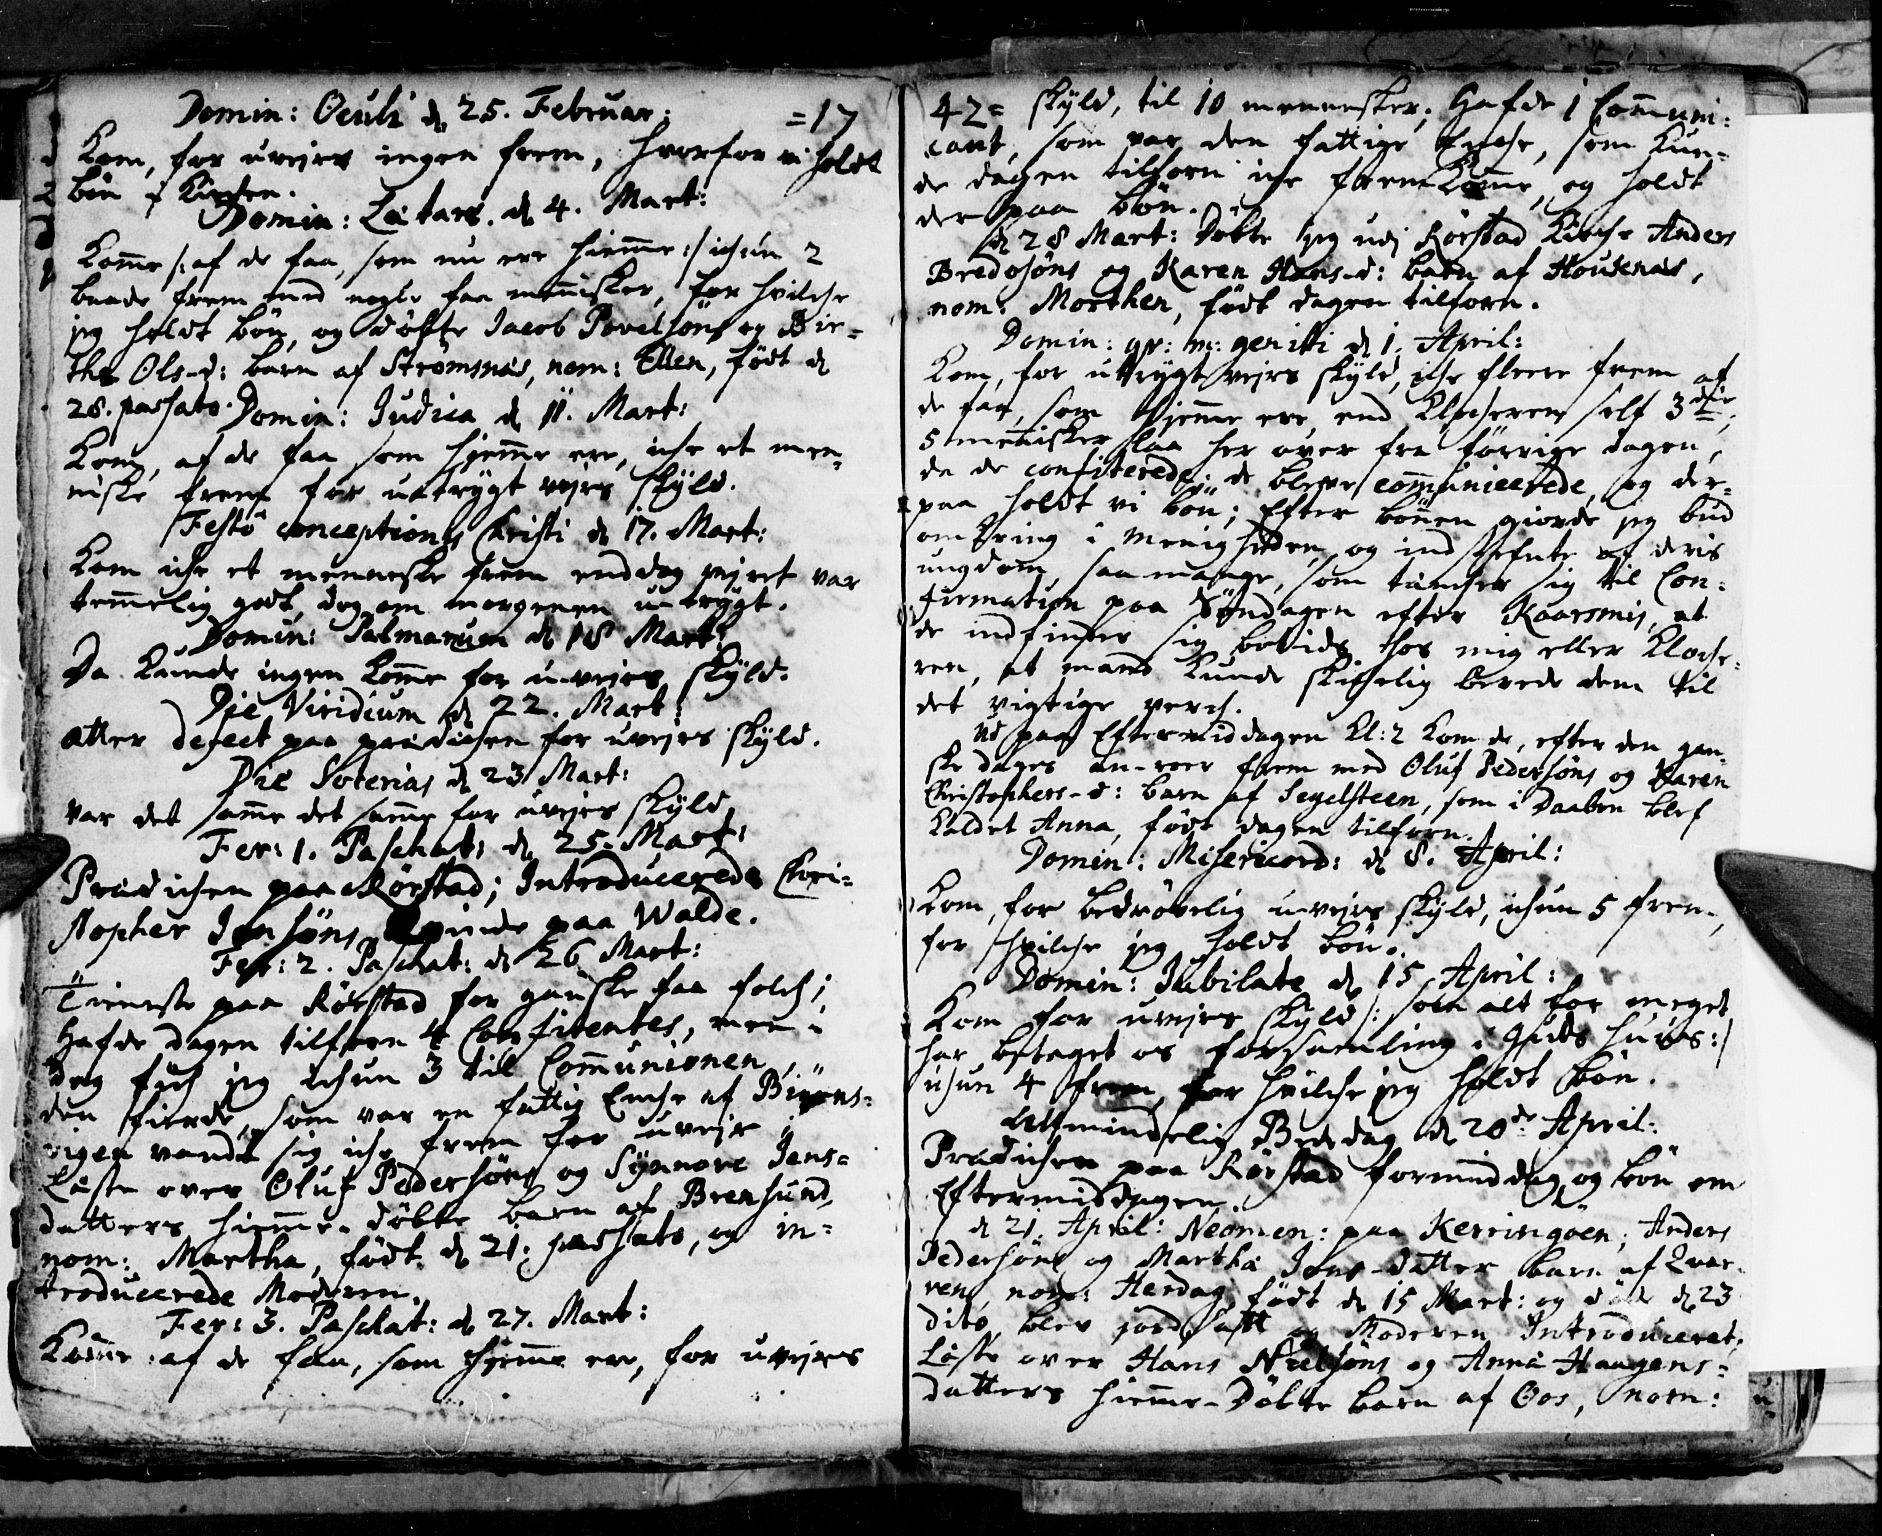 Domin: Oculi d. 25. Februar: =17
Kom, for uvejrs ingen frem, hvorfor vi holdt
bön i Kirchen.
Domin: Lætare. d. 4. Mart:
Komme /: af de faa, som nu ere hiemme :/ ichun 2
baade frem med nogle faa mennisker, for hvilche
jeg holdt bön, og döbte Jacob Povelsöns og Bir=
the Ols-d: barn af Strömsnæs, nom: Ellen, födt d.
28. passato. Domin: Judica d. 11. Mart:
Kom, af de faa som hjemme ere, iche et men=
niske frem for utrygt vejrs skyld.
Festo conceptionis Christi d. 17. Mart:
Kom iche et menneske frem enddog vejret var
temmelig godt, dog om morgenen utrygt.
Domin: Palmarum d. 18 Mart:
Da kunde ingen komme for u-vejrs skyld.
Die Viridium d. 22. Mart:
atter defect paa prædichen for uvejrs skyld.
Die Soterias d. 23 Mart:
var det samme det samme for uvejrs skyld.
Fer: 1. Paschat: d. 25. Mart:
Prædichen paa Rörstad; Introducerede Chri=
stopher Jensöns Qvinde paa Walde.
Fer: 2. Paschat: d. 26 Mart:
Tieneste paa Rörstad for ganske faa folch;
Hafde dagen tilforn 4 Confitentes, men i
dag fich jeg ichun 3 til Communionen
den fierde, som var en fattig Enche af
vigen vandt sig iche frem for uvejr;
Læste over Oluf Pedersöns og Synnove Jens=
datters hiemme-döbte barn af Brensund,
nom: Martha, födt d. 21. passato, og in=
troducerede Moderen.
Fer: 3. Paschat: d. 27. Mart:
Komme af de faa, som hjemme ere, for uvejrs
42= skyld, til 10 mennesker; Hafde 1 Communi=
cant, som var den fattige Enche, som kun=
de dagen tilforn iche frem komme, og holdt
der paa bön.
d. 28 Mart: döbte jeg udj Rörstad Kirche Anders
Bredosöns og Karen Hans-d: barn af Housnæs,
nom: Morthen, födt dagen tilforn.
Domin: qv: m: geniti d. 1. April:
Kom, for utrygt vejrs skyld, iche fleere frem af
de faa, som hjemme ere, end Klocheren self 3die,
5 mennisker laa her over fra forrige dagen,
da de confiterede; de bleve communicerede, og der=
paa holdt vi bön; Efter bönen giorde jeg bud
omkring i Menigheden, og indstefnte af deris
ungdom, saa mange, som tæncher sig til Con=
firmation paa Söndagen efter Kaarsmis, at
de indfinder sig betids hos mig eller Kloche=
ren, at mand kunde skichelig berede dem til
det vigtige verch.
Ud paa Eftermiddagen Kl: 2 kom de, efter den gan=
ske dages an-roer frem med Oluf Pedersöns og Karen
Christophers-d: barn af Segelsteen, som i Daaben blef
kaldet Anna, födt dagen tilforn.
Domin: Misericord: d. 8. April:
Kom, for bedrövelig u-vejrs skyld, ichun 5 frem,
for hvilche jeg holdt bön.
Domin: Jubilate d. 15 April:
Kom for uvejrs skyld /: som alt for meget
har betaget os forsamling i Guds huus :/
ichun 4 frem, for hvilche jeg holdt bön.
Allmindelig Bededag d. 20de April:
Prædichen paa Rörstad formiddag, og bön om
Eftermiddagen.
d. 21. April: paa Kerringöen; Anders
Pedersöns og Martha Jens-datter barn af Qvar=
ven, nom: födt d. 15 Mart: og död d. 23
dito, blev jord kast og Moderen Introduceret.
Læste over Hans Nielsöns og Anna Haagens=
datters hiemme-döbte barn af Oos, nom: